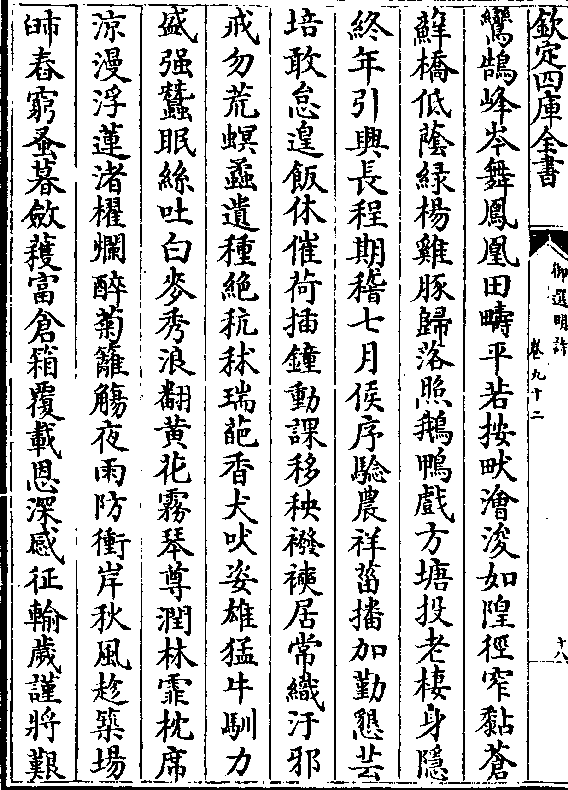 欽定四庫全書
御選明詩
卷九十二
十八
鸞鵠峰岑舞鳳凰田疇平若按畎澮浚如隍徑窄黏蒼
蘚橋低蔭綠楊雞豚歸落照鵝鴨戲方塘投老棲身隱
終年引興長程期稽七月候序驗農祥菑播加勤懇芸
培敢怠遑飯休催荷插鐘動課移秧襏襫居常織汙邪
戒勿荒螟螽遺種絶秔秫瑞葩香犬吠姿雄猛牛馴力
盛强蠶眠絲吐白麥秀浪翻黄花霧琴尊潤林霏枕席
涼漫浮蓮渚櫂爛醉菊籬觴夜雨防衝岸秋風趁築場
㫪窮蚤暮斂穫富倉箱覆載恩深感征輸歲謹將艱